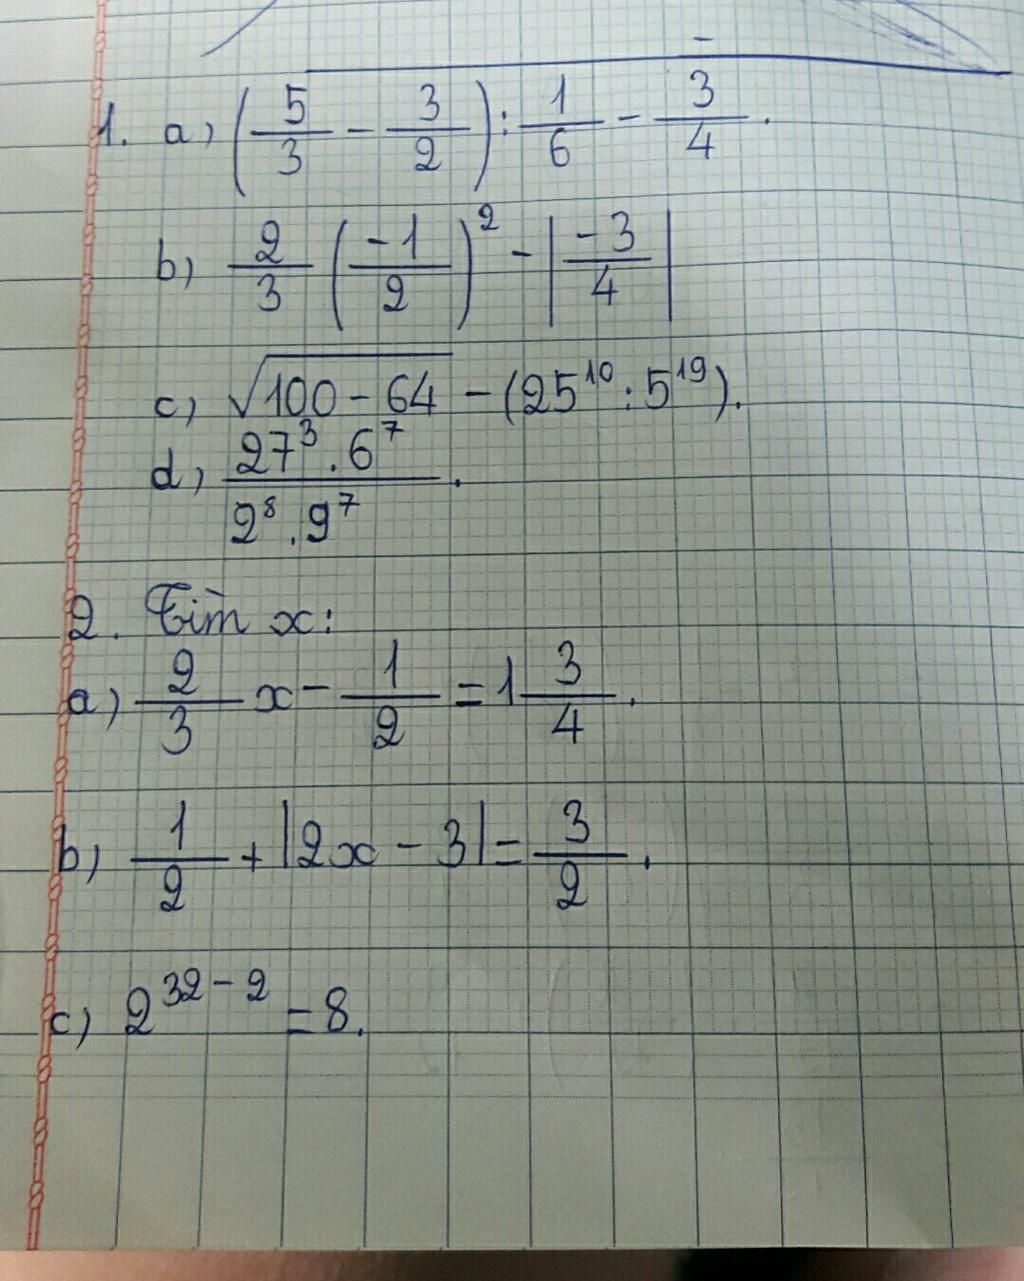 1. a) (5/3 - 3/2) : 1/6 - 3/4.
b) 2/3 (-1/2)² - |-3/4|
c) √(100 - 64) - (25¹⁰ : 5¹⁹).
d) (27³ . 6⁷)/(2⁸ . 9⁷).
2. Tìm x:
a) 2/3 x - 1/2 = 1 3/4.
b) 1/2 + |2x - 3| = 3/2.
c) 2³²⁻² = 8.